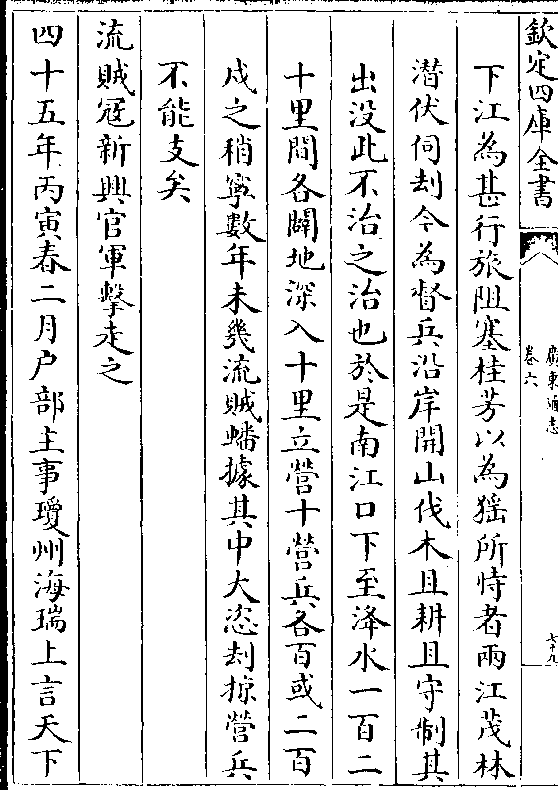 欽定四庫全書
廣東通志
卷六
七十九
下江為甚行旅阻塞桂芳以為猺所恃者兩江茂林
潜伏伺刦今為督兵沿岸開山伐木且耕且守制其
出没此不治之治也於是南江口下至洚水一百二
十里間各闢地深入十里立營十營兵各百或二百
戍之稍寧數年未幾流賊蟠據其中大恣刦掠營兵
不能支矣
流賊冦新興官軍擊走之
四十五年丙寅春二月户部主事瓊州海瑞上言天下